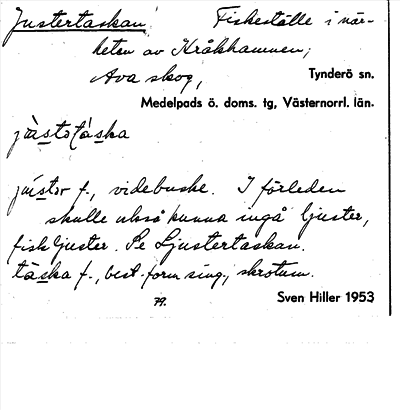 Justertaskan! Fiskeställe i när-
heten av Kråkhamnen;
Ava skog, Tynderö sn.
Medelpads ö. doms. tg, Västernorrl. län.
jùstoṭàska
jústor f., videbuske. I förleden
skulle också kunna ingå ljuster,
fiskljuster. Se Ljustertaskan.
tàska f., best. form sing., skrotum.
79. Sven Hiller 1953